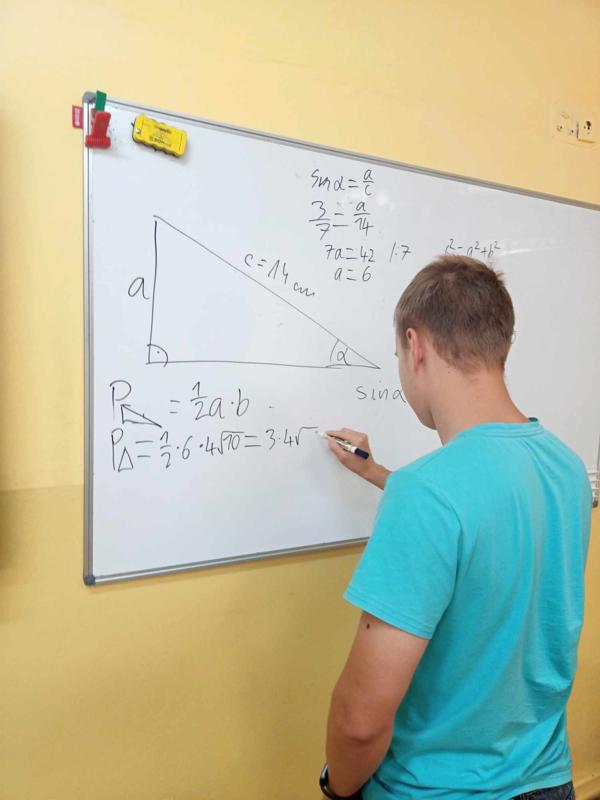 sinα = a/c
3/7 = a/14
7a = 42 |:7
a = 6
c² = a² + b²
c = 14 cm
a
α
sinα
P = 1/2 a·b
P△ = 1/2 · 6 · 4√10 = 3·4√